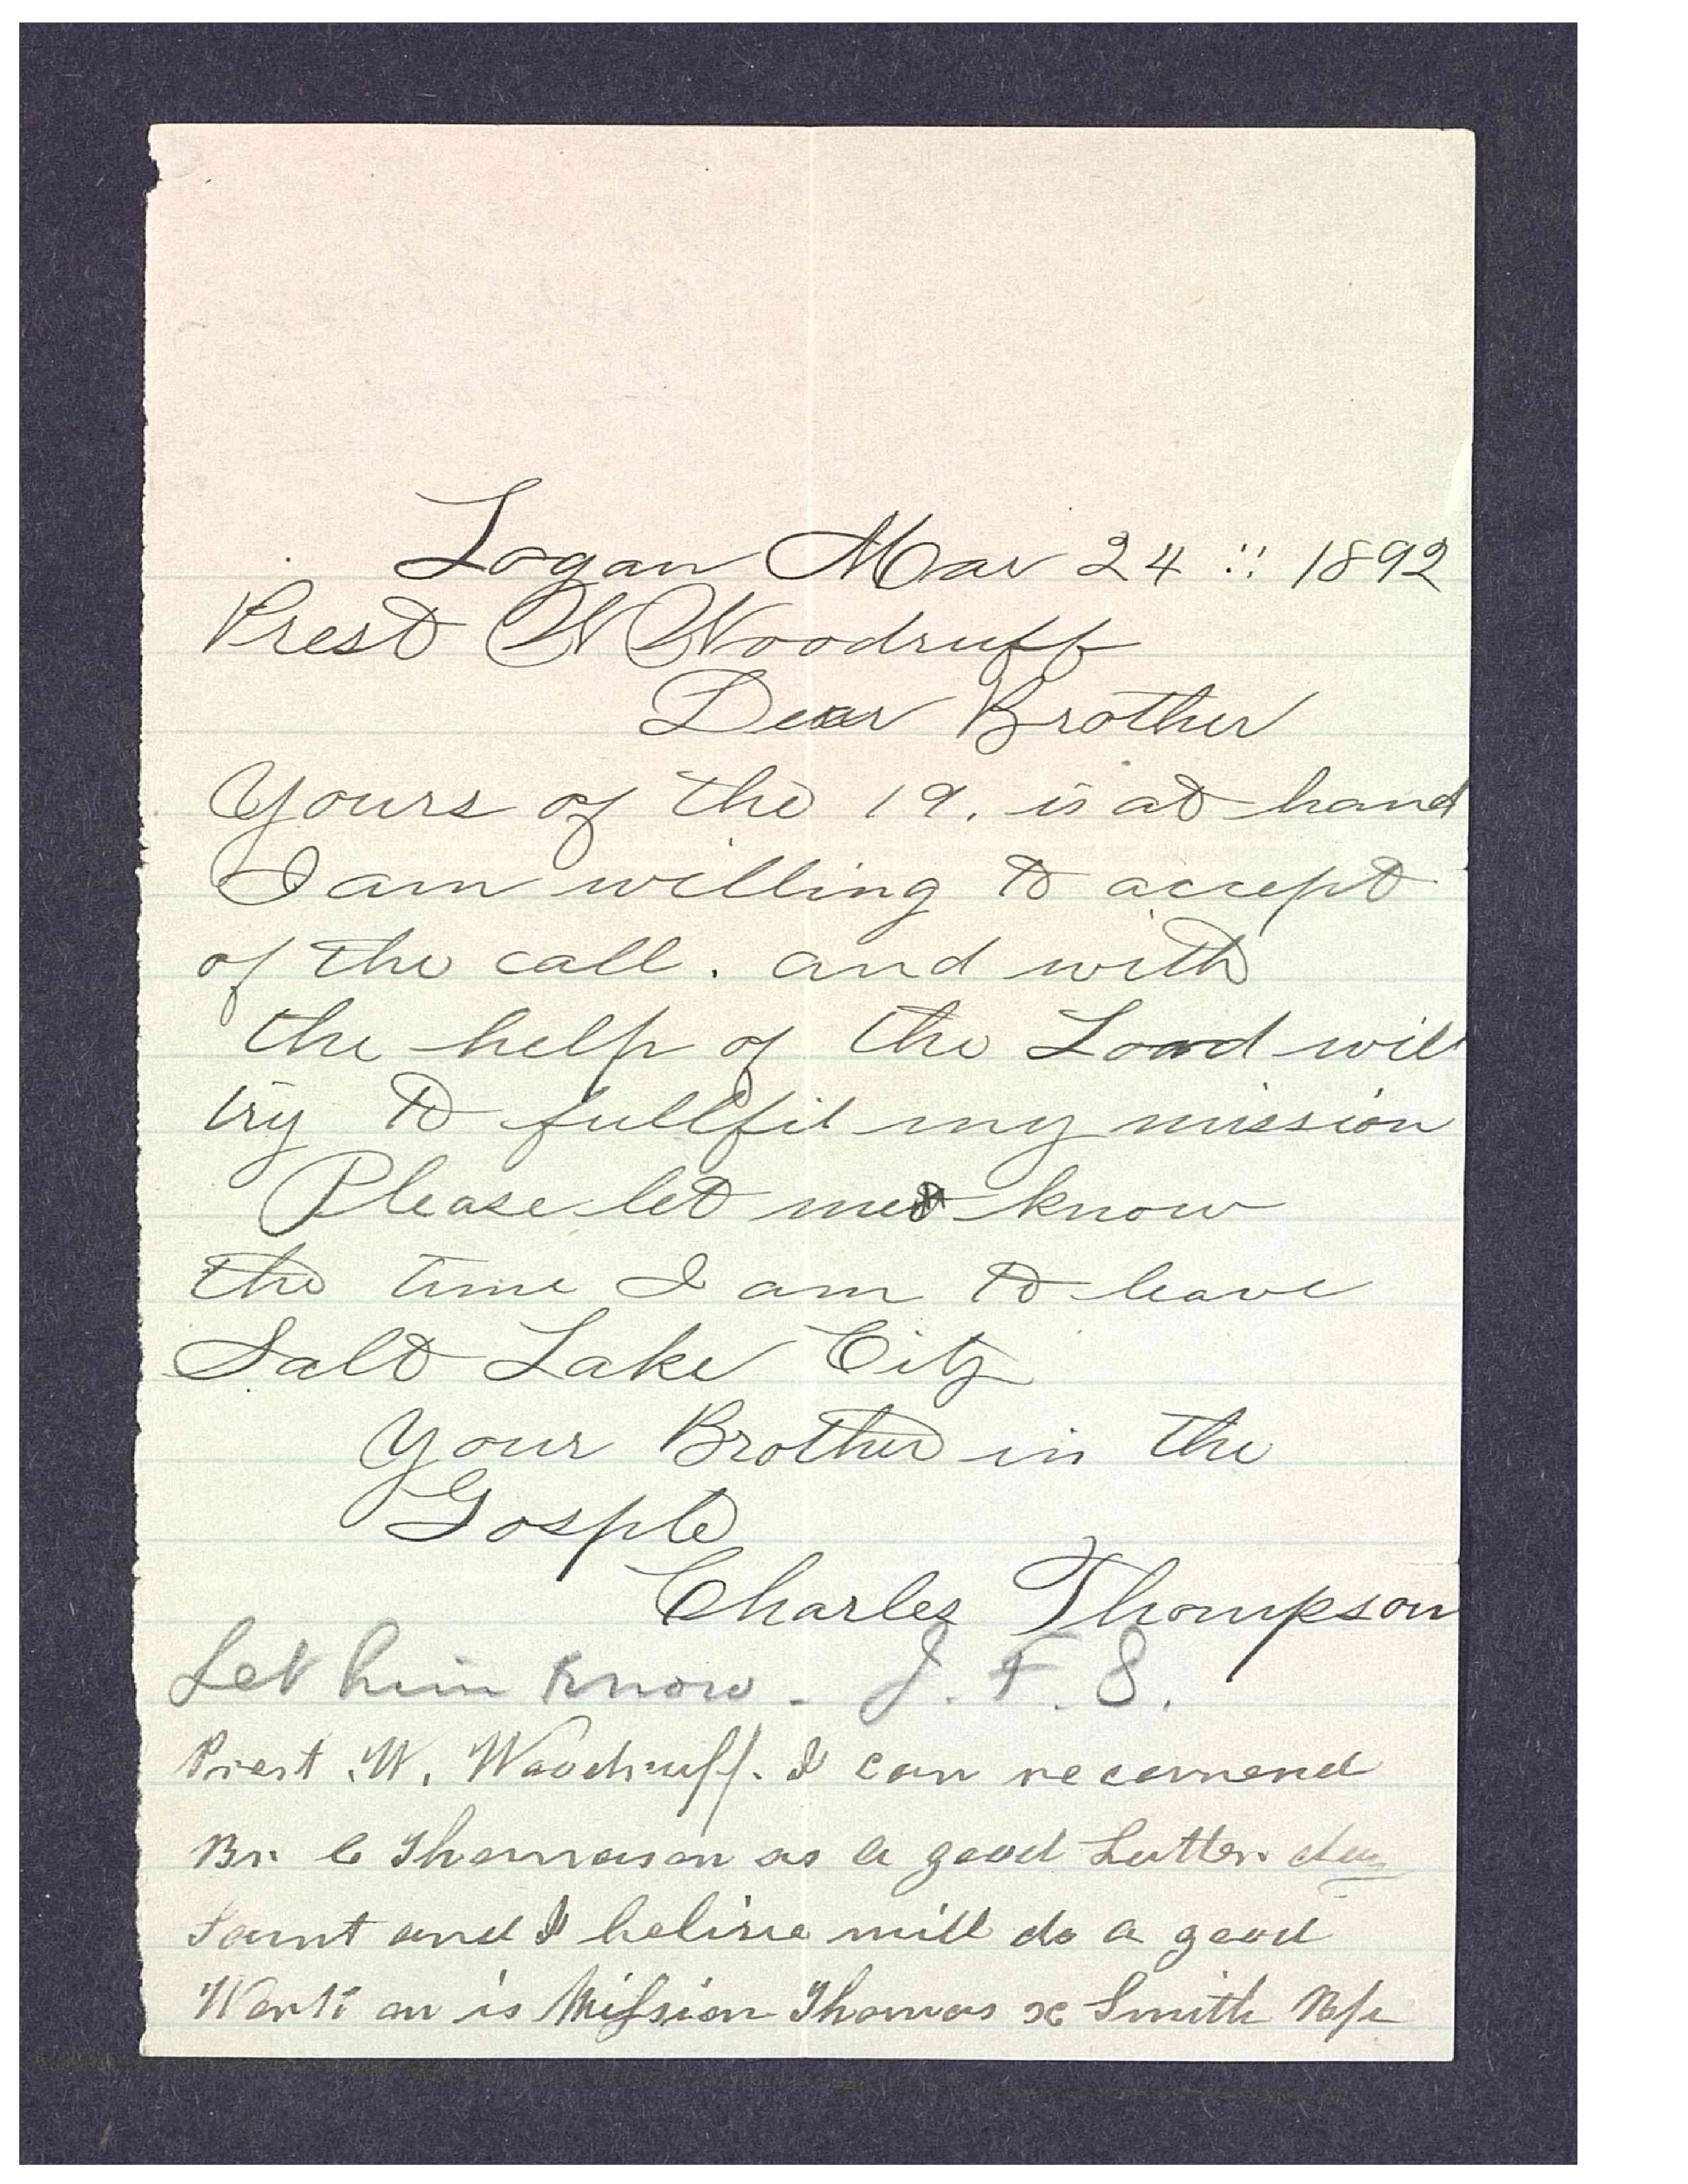 Logan Mar 24 :: 1892
Prest W Woodruff
Dear Brother
Yours of the 19. is at hand
I am willing to accept
of the call. and with
the help of the Lord will
try to fullfil my mission
Please let me know
the time I am to leave
Salt Lake City
Your Brother in the
Gosple
Charles Thompson
Let him know. J. F. S.
Prest. W. Woodruff. I can recomend
Br. C Thomason as a good Latter day
Saint and I belive will do a good
Work on is Mission Thomas X Smith Bp